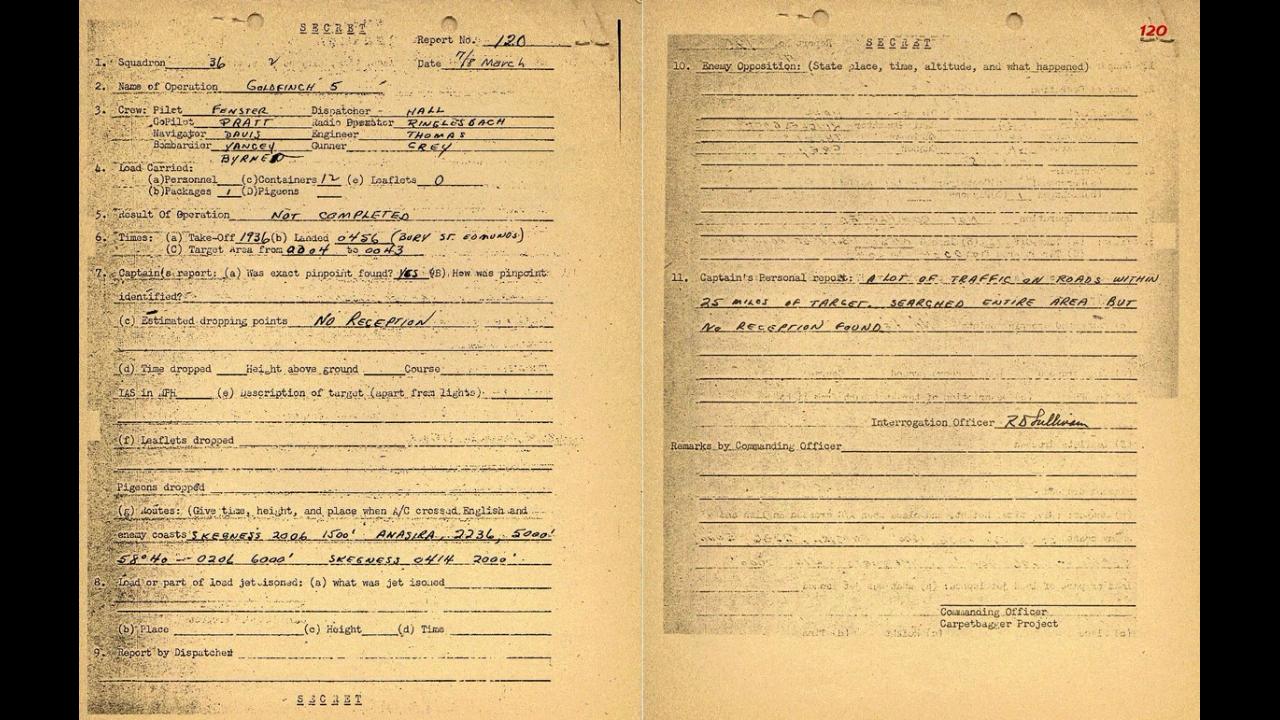 SECRET
Report No. 120
1. Squadron 36 Date 7/8 March
2. Name of Operation GOLDFINCH 5
3. Crew: Pilot FENSTER Dispatcher HALL
CoPilot PRATT Radio Operator RINGLESBACH
Navigator DAVIS Engineer THOMAS
Bombardier YANCEY Gunner GREY
BYRNE
4. Load Carried:
(a)Personnel (c)Containers 12 (e) Leaflets 0
(b)Packages 1 (D)Pigeons
5. Result Of Operation NOT COMPLETED
6. Times: (a) Take-Off 1936 (b) Landed 0456 (BURY ST. EDMUNDS)
(C) Target Area from 0004 to 0043
7. Captain's report: (a) Was exact pinpoint found? YES (B) How was pinpoint
identified?
(c) Estimated dropping points NO RECEPTION
(d) Time dropped Height above ground Course
IAS in MPH (e) Description of target (apart from lights)
(f) Leaflets dropped
Pigeons dropped
(g) Routes: (Give time, height, and place when A/C crossed English and
enemy coasts SKEGNESS 2006 1500' ANASIRA, 2236, 5000'
58°40 - 0206 6000' SKEGNESS 0414 2000'
8. Load or part of load jetisoned: (a) what was jetisoned
(b) Place (c) Height (d) Time
9. Report by Dispatcher
SECRET
120
SECRET
10. Enemy Opposition: (State place, time, altitude, and what happened)
11. Captain's Personal report: A LOT OF TRAFFIC ON ROADS WITHIN
25 MILES OF TARGET. SEARCHED ENTIRE AREA BUT
NO RECEPTION FOUND.
Interrogation Officer R D Sullivan
Remarks by Commanding Officer
Commanding Officer
Carpetbagger Project